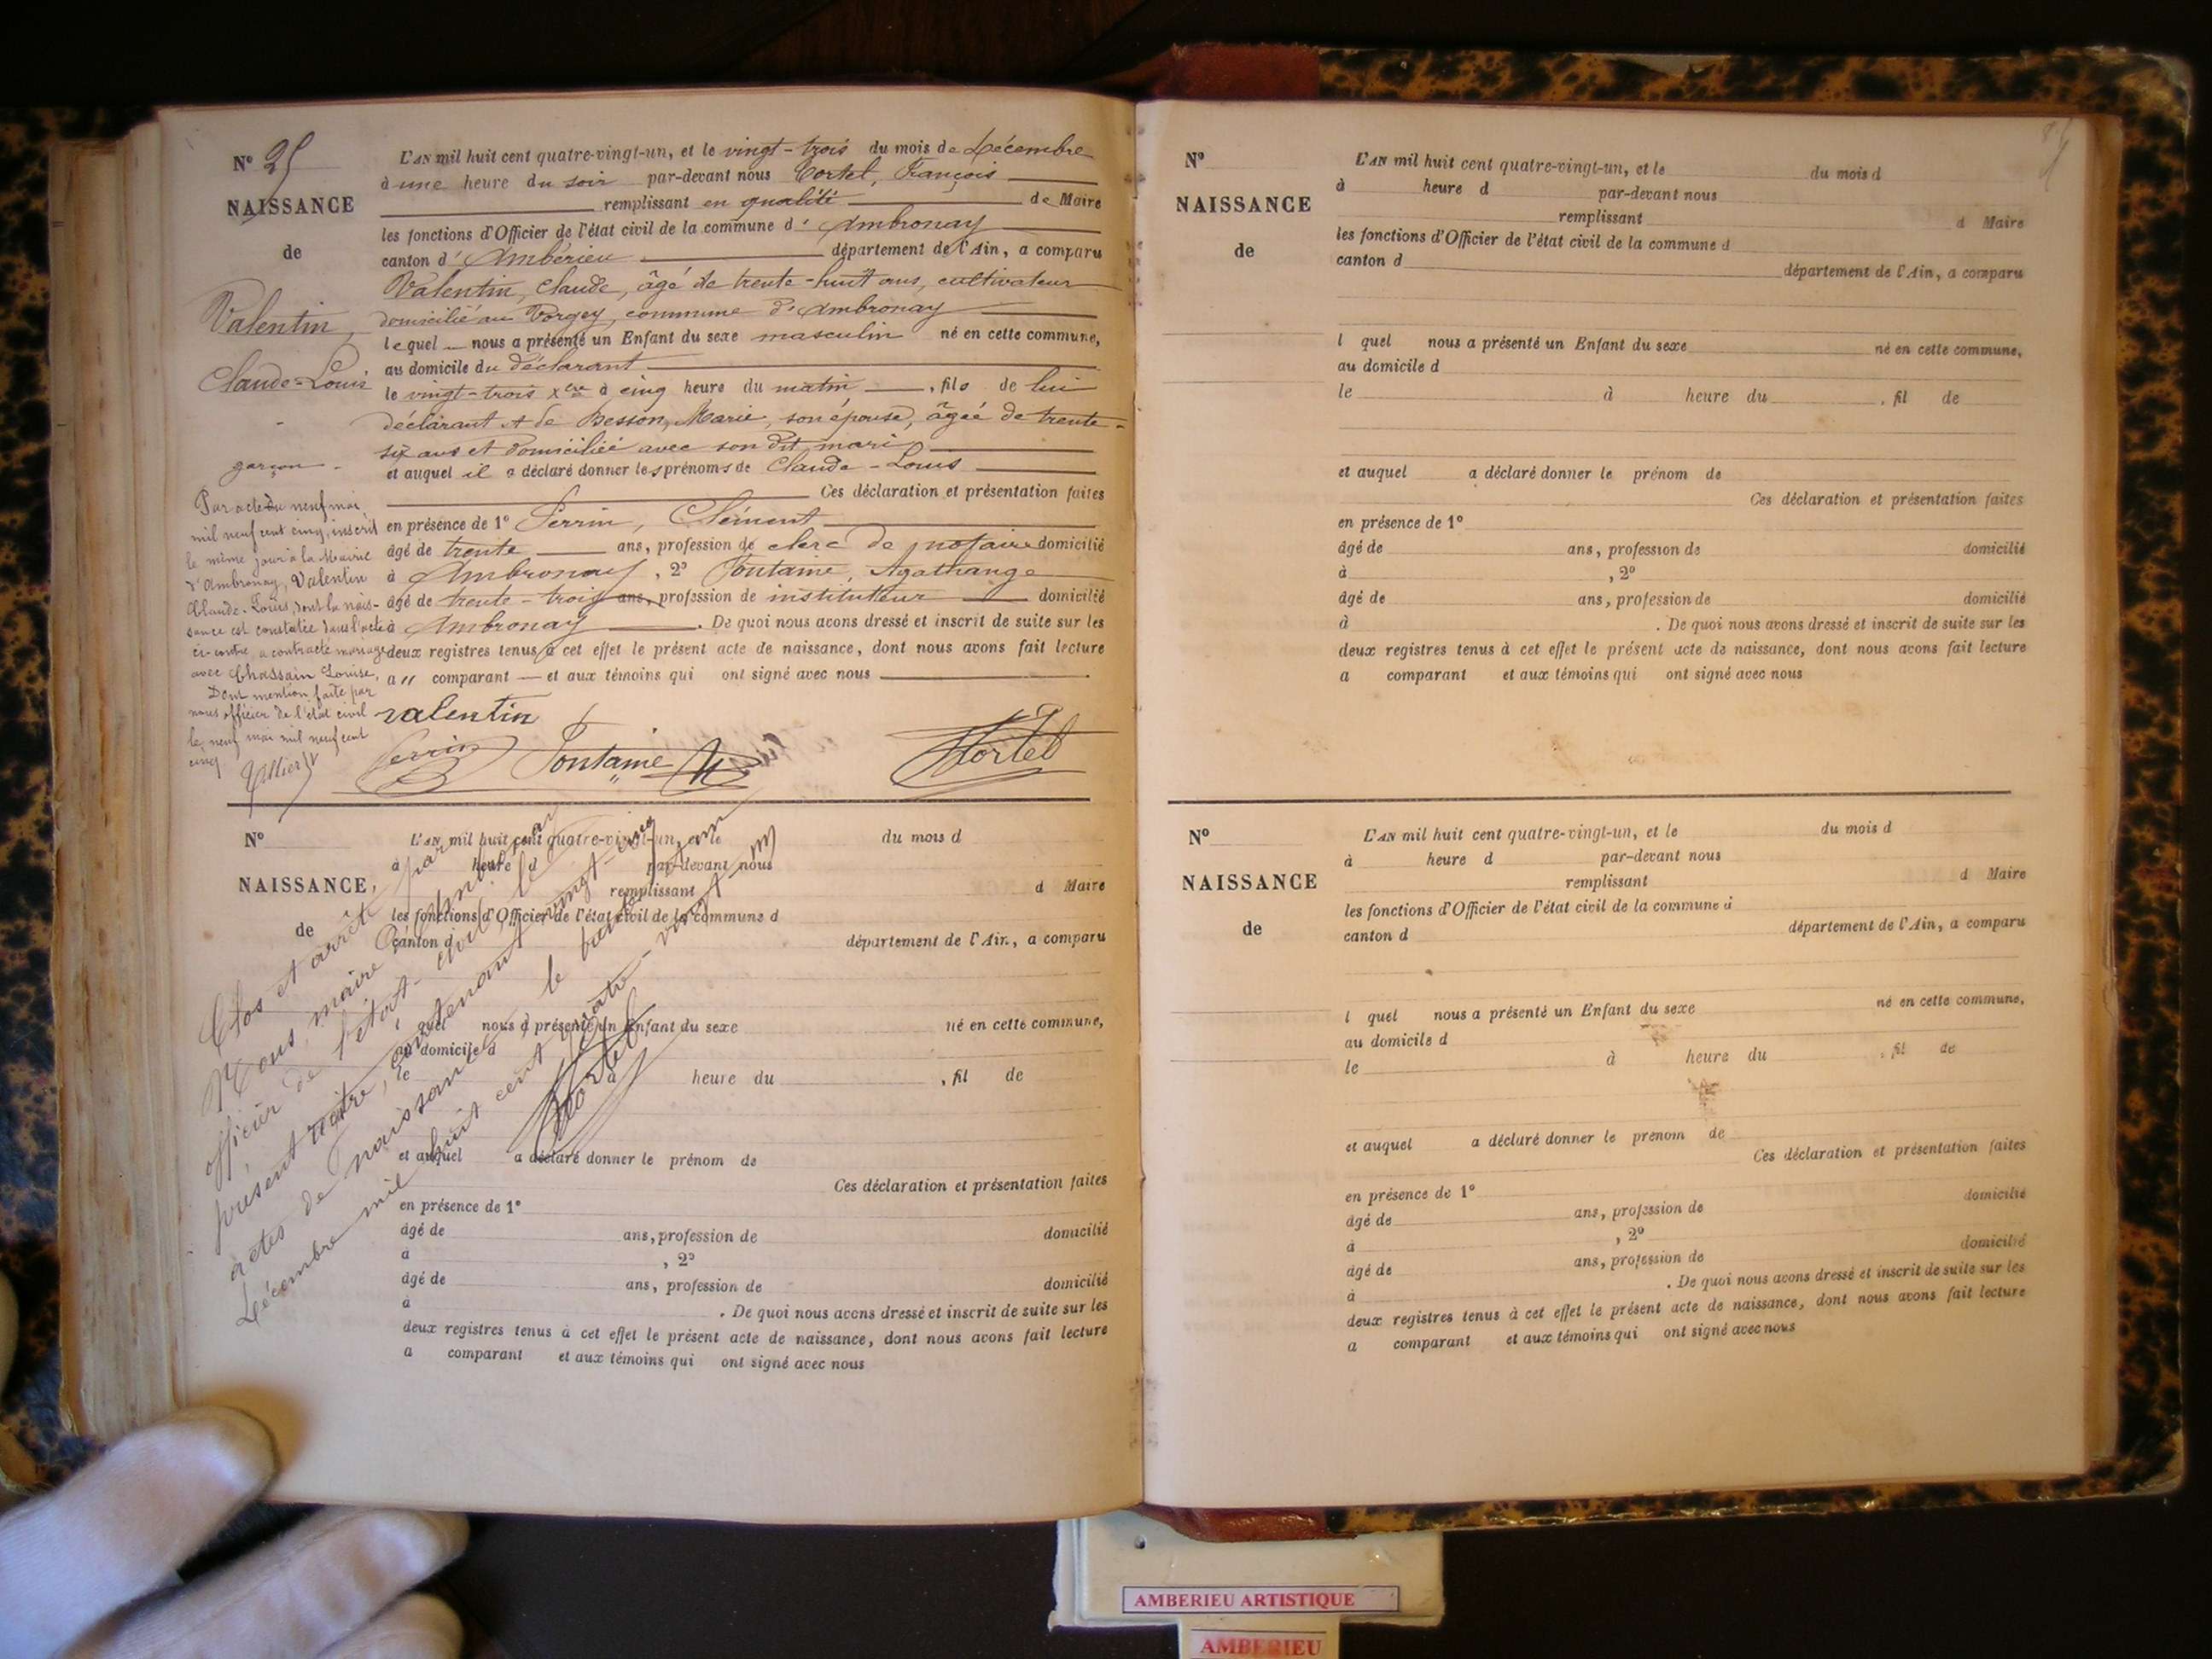 N° 25
NAISSANCE
de
Valentin,
Claude-Louis
garçon
L'AN mil huit cent quatre-vingt-un, et le vingt-trois du mois de Décembre
à une heure du soir par-devant nous Tortel, François
remplissant en qualité de Maire
les fonctions d'Officier de l'état civil de la commune d'Ambronay
canton d'Ambérieu département de l'Ain, a comparu
Valentin, Claude, âgé de trente-huit ans, cultivateur
domicilié au Vorgey, commune d'Ambronay
lequel nous a présenté un Enfant du sexe masculin né en cette commune,
au domicile du déclarant
le vingt-trois Xbre à cinq heure du matin, fils de lui
déclarant et de Besson, Marie, son épouse, âgée de trente-
six ans et domiciliée avec son dit mari
et auquel il a déclaré donner les prénoms de Claude-Louis
Ces déclaration et présentation faites
en présence de 1° Perrin, Clément
âgé de trente ans, profession de clerc de notaire domicilié
à Ambronay, 2° Fontaine, Agathange
âgé de trente-trois ans, profession de instituteur domicilié
à Ambronay. De quoi nous avons dressé et inscrit de suite sur les
deux registres tenus à cet effet le présent acte de naissance, dont nous avons fait lecture
a u comparant et aux témoins qui ont signé avec nous
valentin
Perrin Fontaine Tortel
Par acte du neuf mai
mil neuf cent cinq, inscrit
le même jour à la Mairie
d'Ambronay, Valentin
Claude-Louis, dont la nais-
sance est constatée dans l'acte
ci-contre, a contracté mariage
avec Chassain Louise,
Dont mention faite par
nous officier de l'état civil
le neuf mai mil neuf cent
cinq
N°
NAISSANCE,
de
L'AN mil huit cent quatre-vingt-un, et le du mois d
à heure d par-devant nous
remplissant d Maire
les fonctions d'Officier de l'état civil de la commune d
canton d département de l'Ain, a comparu
l quel nous a présenté un Enfant du sexe né en cette commune,
au domicile d
le à heure du , fil de
et auquel a déclaré donner le prénom de
Ces déclaration et présentation faites
en présence de 1°
âgé de ans, profession de domicilié
à , 2°
âgé de ans, profession de domicilié
à . De quoi nous avons dressé et inscrit de suite sur les
deux registres tenus à cet effet le présent acte de naissance, dont nous avons fait lecture
a comparant et aux témoins qui ont signé avec nous
Clos et arrêté par
Nous, maire
officier de l'état-civil le
présent registre, contenant vingt-cinq
actes de naissance le
Décembre mil huit cent quatre-vingt-un
Tortel
N°
NAISSANCE
de
L'AN mil huit cent quatre-vingt-un, et le du mois d
à heure d par-devant nous
remplissant d Maire
les fonctions d'Officier de l'état civil de la commune d
canton d département de l'Ain, a comparu
l quel nous a présenté un Enfant du sexe né en cette commune,
au domicile d
le à heure du , fil de
et auquel a déclaré donner le prénom de
Ces déclaration et présentation faites
en présence de 1°
âgé de ans, profession de domicilié
à , 2°
âgé de ans, profession de domicilié
à . De quoi nous avons dressé et inscrit de suite sur les
deux registres tenus à cet effet le présent acte de naissance, dont nous avons fait lecture
a comparant et aux témoins qui ont signé avec nous
N°
NAISSANCE
de
L'AN mil huit cent quatre-vingt-un, et le du mois d
à heure d par-devant nous
remplissant d Maire
les fonctions d'Officier de l'état civil de la commune d
canton d département de l'Ain, a comparu
l quel nous a présenté un Enfant du sexe né en cette commune,
au domicile d
le à heure du , fil de
et auquel a déclaré donner le prénom de
Ces déclaration et présentation faites
en présence de 1°
âgé de ans, profession de domicilié
à , 2°
âgé de ans, profession de domicilié
à . De quoi nous avons dressé et inscrit de suite sur les
deux registres tenus à cet effet le présent acte de naissance, dont nous avons fait lecture
a comparant et aux témoins qui ont signé avec nous
AMBERIEU ARTISTIQUE
AMBERIEU